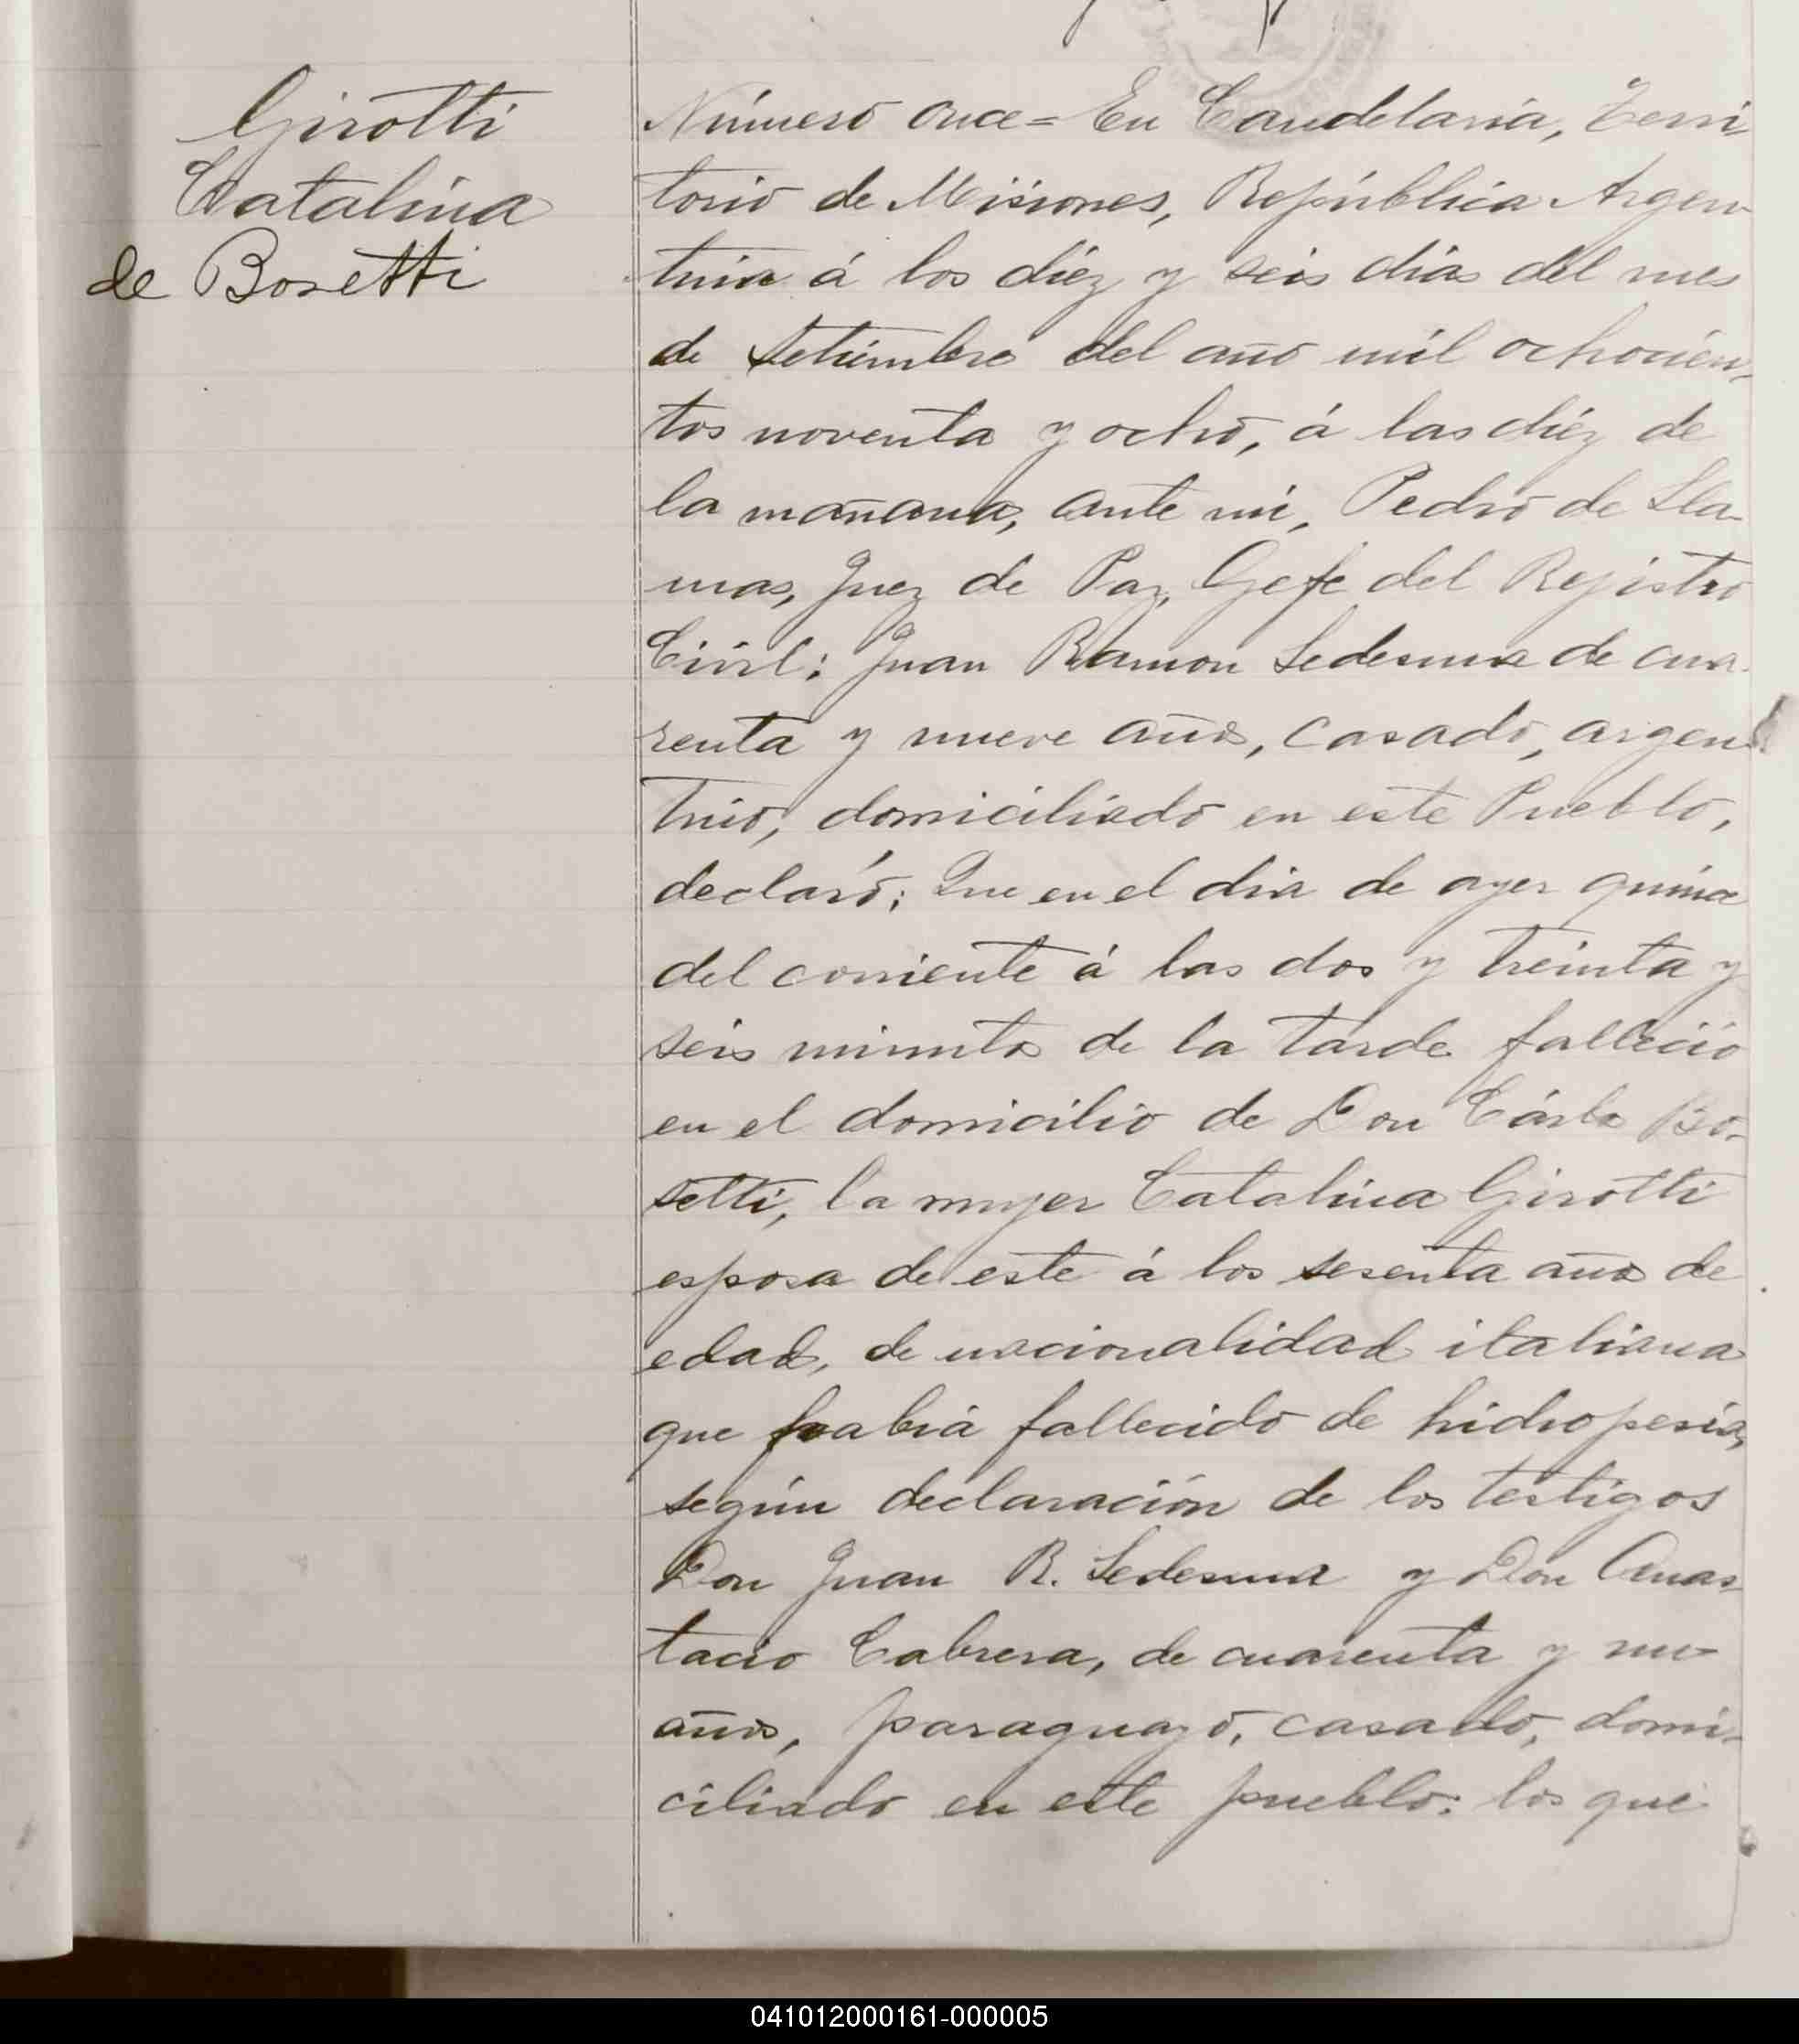 Girotti
Catalina
de Bosetti
Número once = En Candelaria, Terri
torio de Misiones, República Argen
tina á los diéz y seis dias del mes
de Setiembre del año mil ochocien
tos noventa y ocho, á las diéz de
la mañana, ante mi, Pedro de Lla-
mas, Juez de Paz, Gefe del Rejistro
Civil; Juan Ramon Ledesma de cua
renta y nueve años, casado, argen
tino, domiciliado en este Pueblo,
declaró; Que en el dia de ayer quince
del corriente á las dos y treinta y
seis minutos de la tarde falleció
en el domicilio de Don Cárlos Bo-
setti, la mujer Catalina Girotti
esposa de este á los sesenta años de
edad, de nacionalidad italiana
que habia fallecido de hidropesia,
según declaración de los testigos
Don Juan R. Ledesma y Don Anas
tacio Cabrera, de cuarenta y
años, paraguayo, casado, domi-
ciliado en este pueblo: los que
041012000161-000005